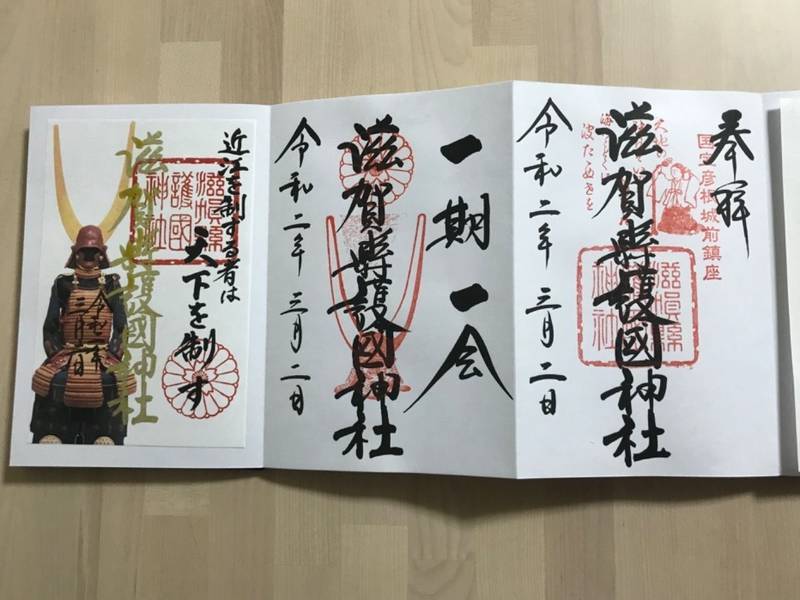 奉拝
国宝彦根城前鎮座
滋賀縣護國神社
滋賀縣護國神社
令和二年三月二日
一期一会
滋賀縣護國神社
令和二年三月二日
近江を制する者は
天下を制す
滋賀縣護國神社
滋賀縣護國神社